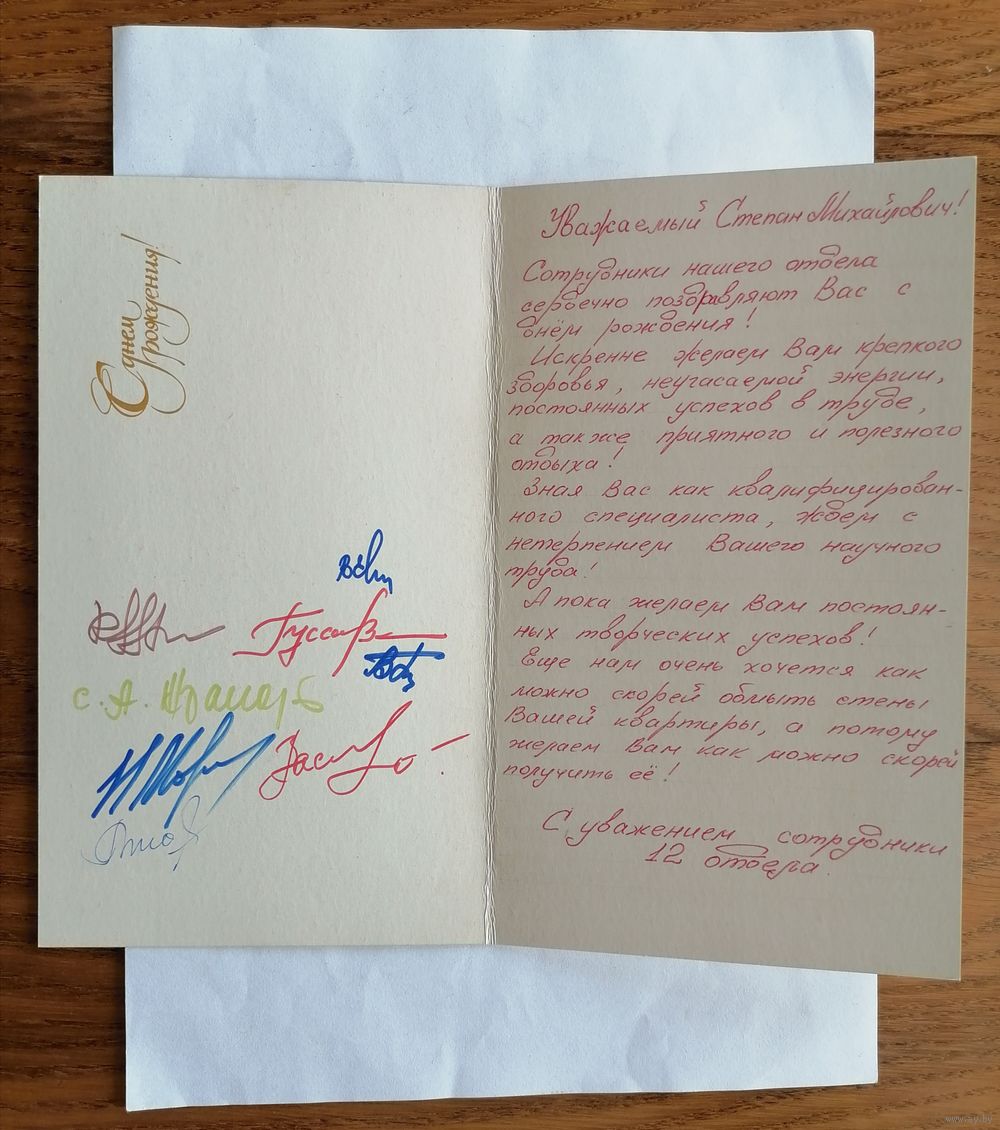 С днем
рождения!
Уважаемый Степан Михайлович!
Сотрудники нашего отдела
сердечно поздравляют Вас с
днём рождения!
Искренне желаем Вам крепкого
здоровья, неугасаемой энергии,
постоянных успехов в труде,
а также приятного и полезного
отдыха!
Зная Вас как квалифицирован-
ного специалиста, ждем с
нетерпением Вашего научного
труда!
А пока желаем Вам постоян-
ных творческих успехов!
Еще нам очень хочется как
можно скорей обмыть стены
Вашей квартиры, а потому
желаем Вам как можно скорей
получить её!
С уважением сотрудники
12 отдела.
С. А.
www.ay.by